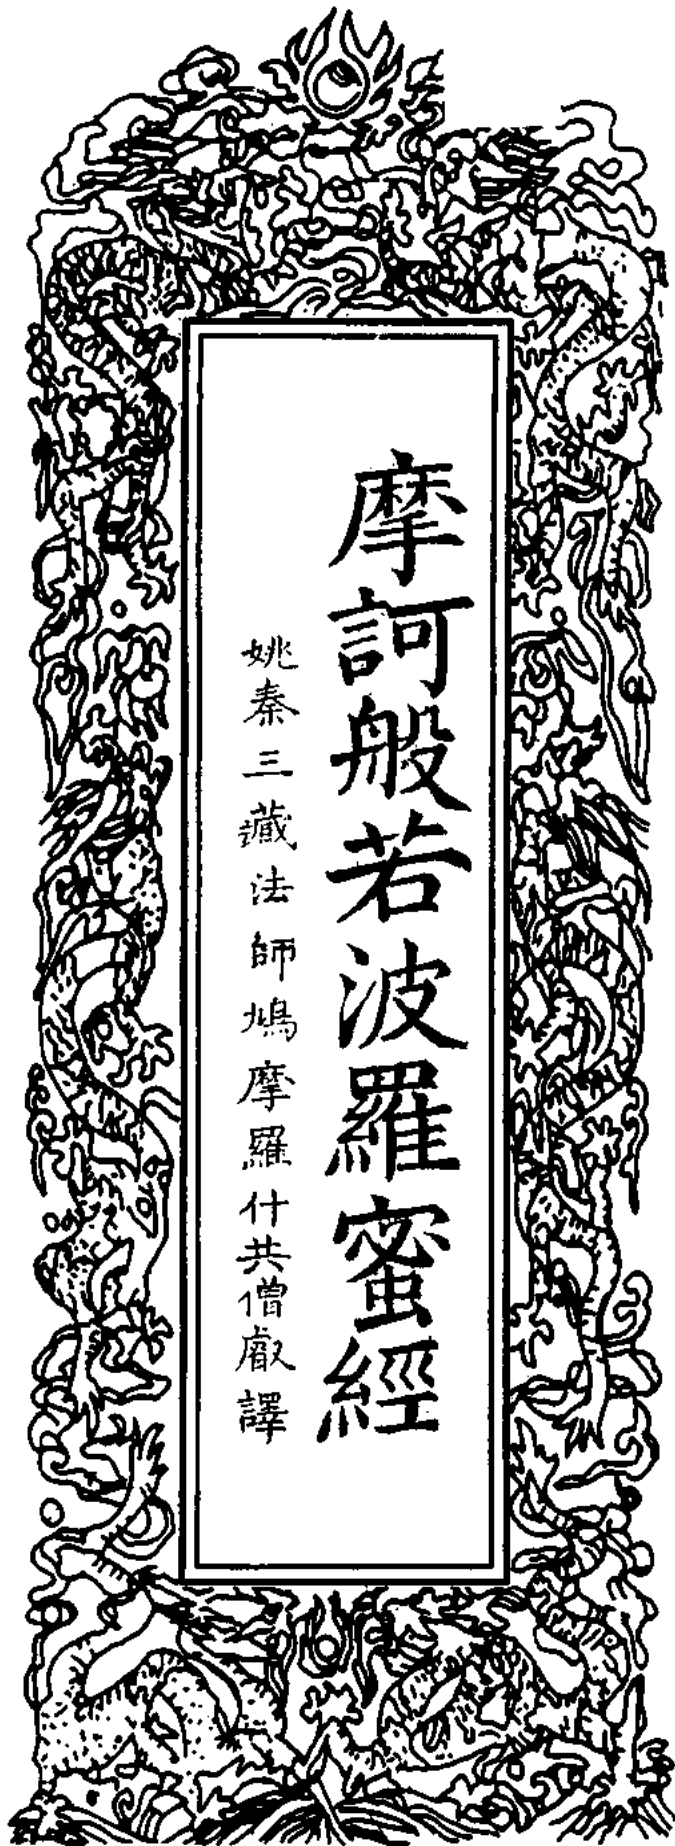 摩訶般若波羅蜜經
姚秦三藏法師鳩摩羅什共僧叡譯